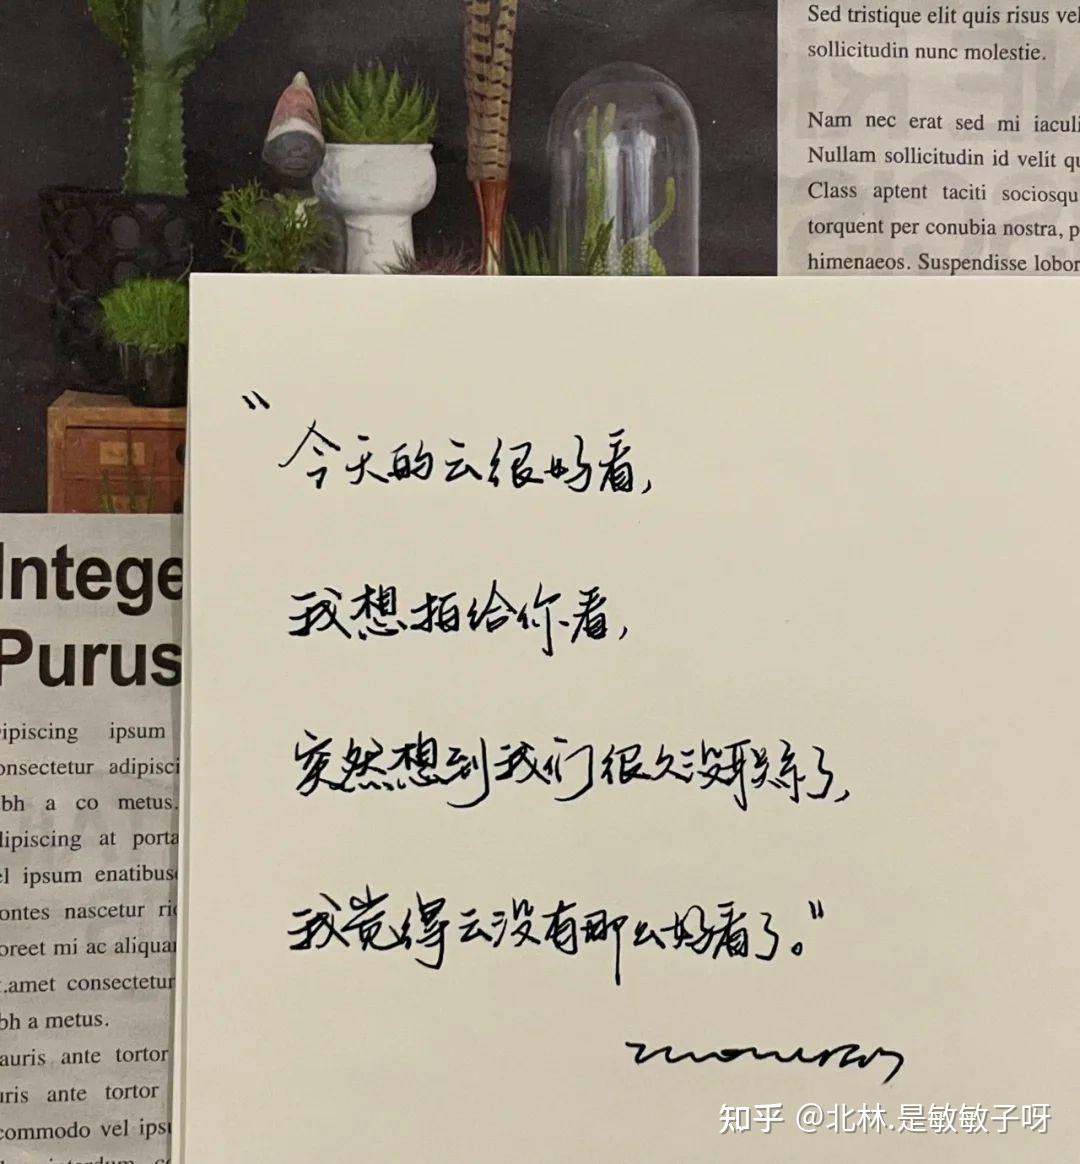 Sed tristique elit quis risus vel
sollicitudin nunc molestie.
Nam nec erat sed mi iaculi
Nullam sollicitudin id velit qu
Class aptent taciti sociosqu
torquent per conubia nostra, p
himenaeos. Suspendisse lobor
"今天的云很好看,
我想拍给你看,
突然想到我们很久没联系了,
我觉得云没有那么好看了。"
Intege
Purus
ipiscing ipsum
onsectetur adipisci
bh a co metus.
lipiscing at porta
el ipsum enatibus
ontes nascetur ri
oreet mi ac aliquar
.amet consectetur
bh a metus.
auris ante tortor
uris ante tortor
commodo vel ipsu
知乎 @北林.是敏敏子呀